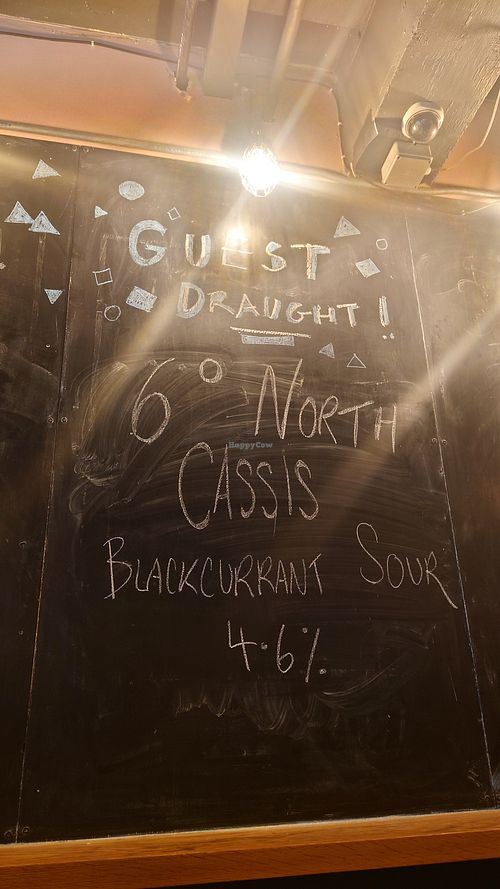 GUEST
DRAUGHT!
6° NORTH
CASSIS
BLACKCURRANT SOUR
4.6%
HappyCow